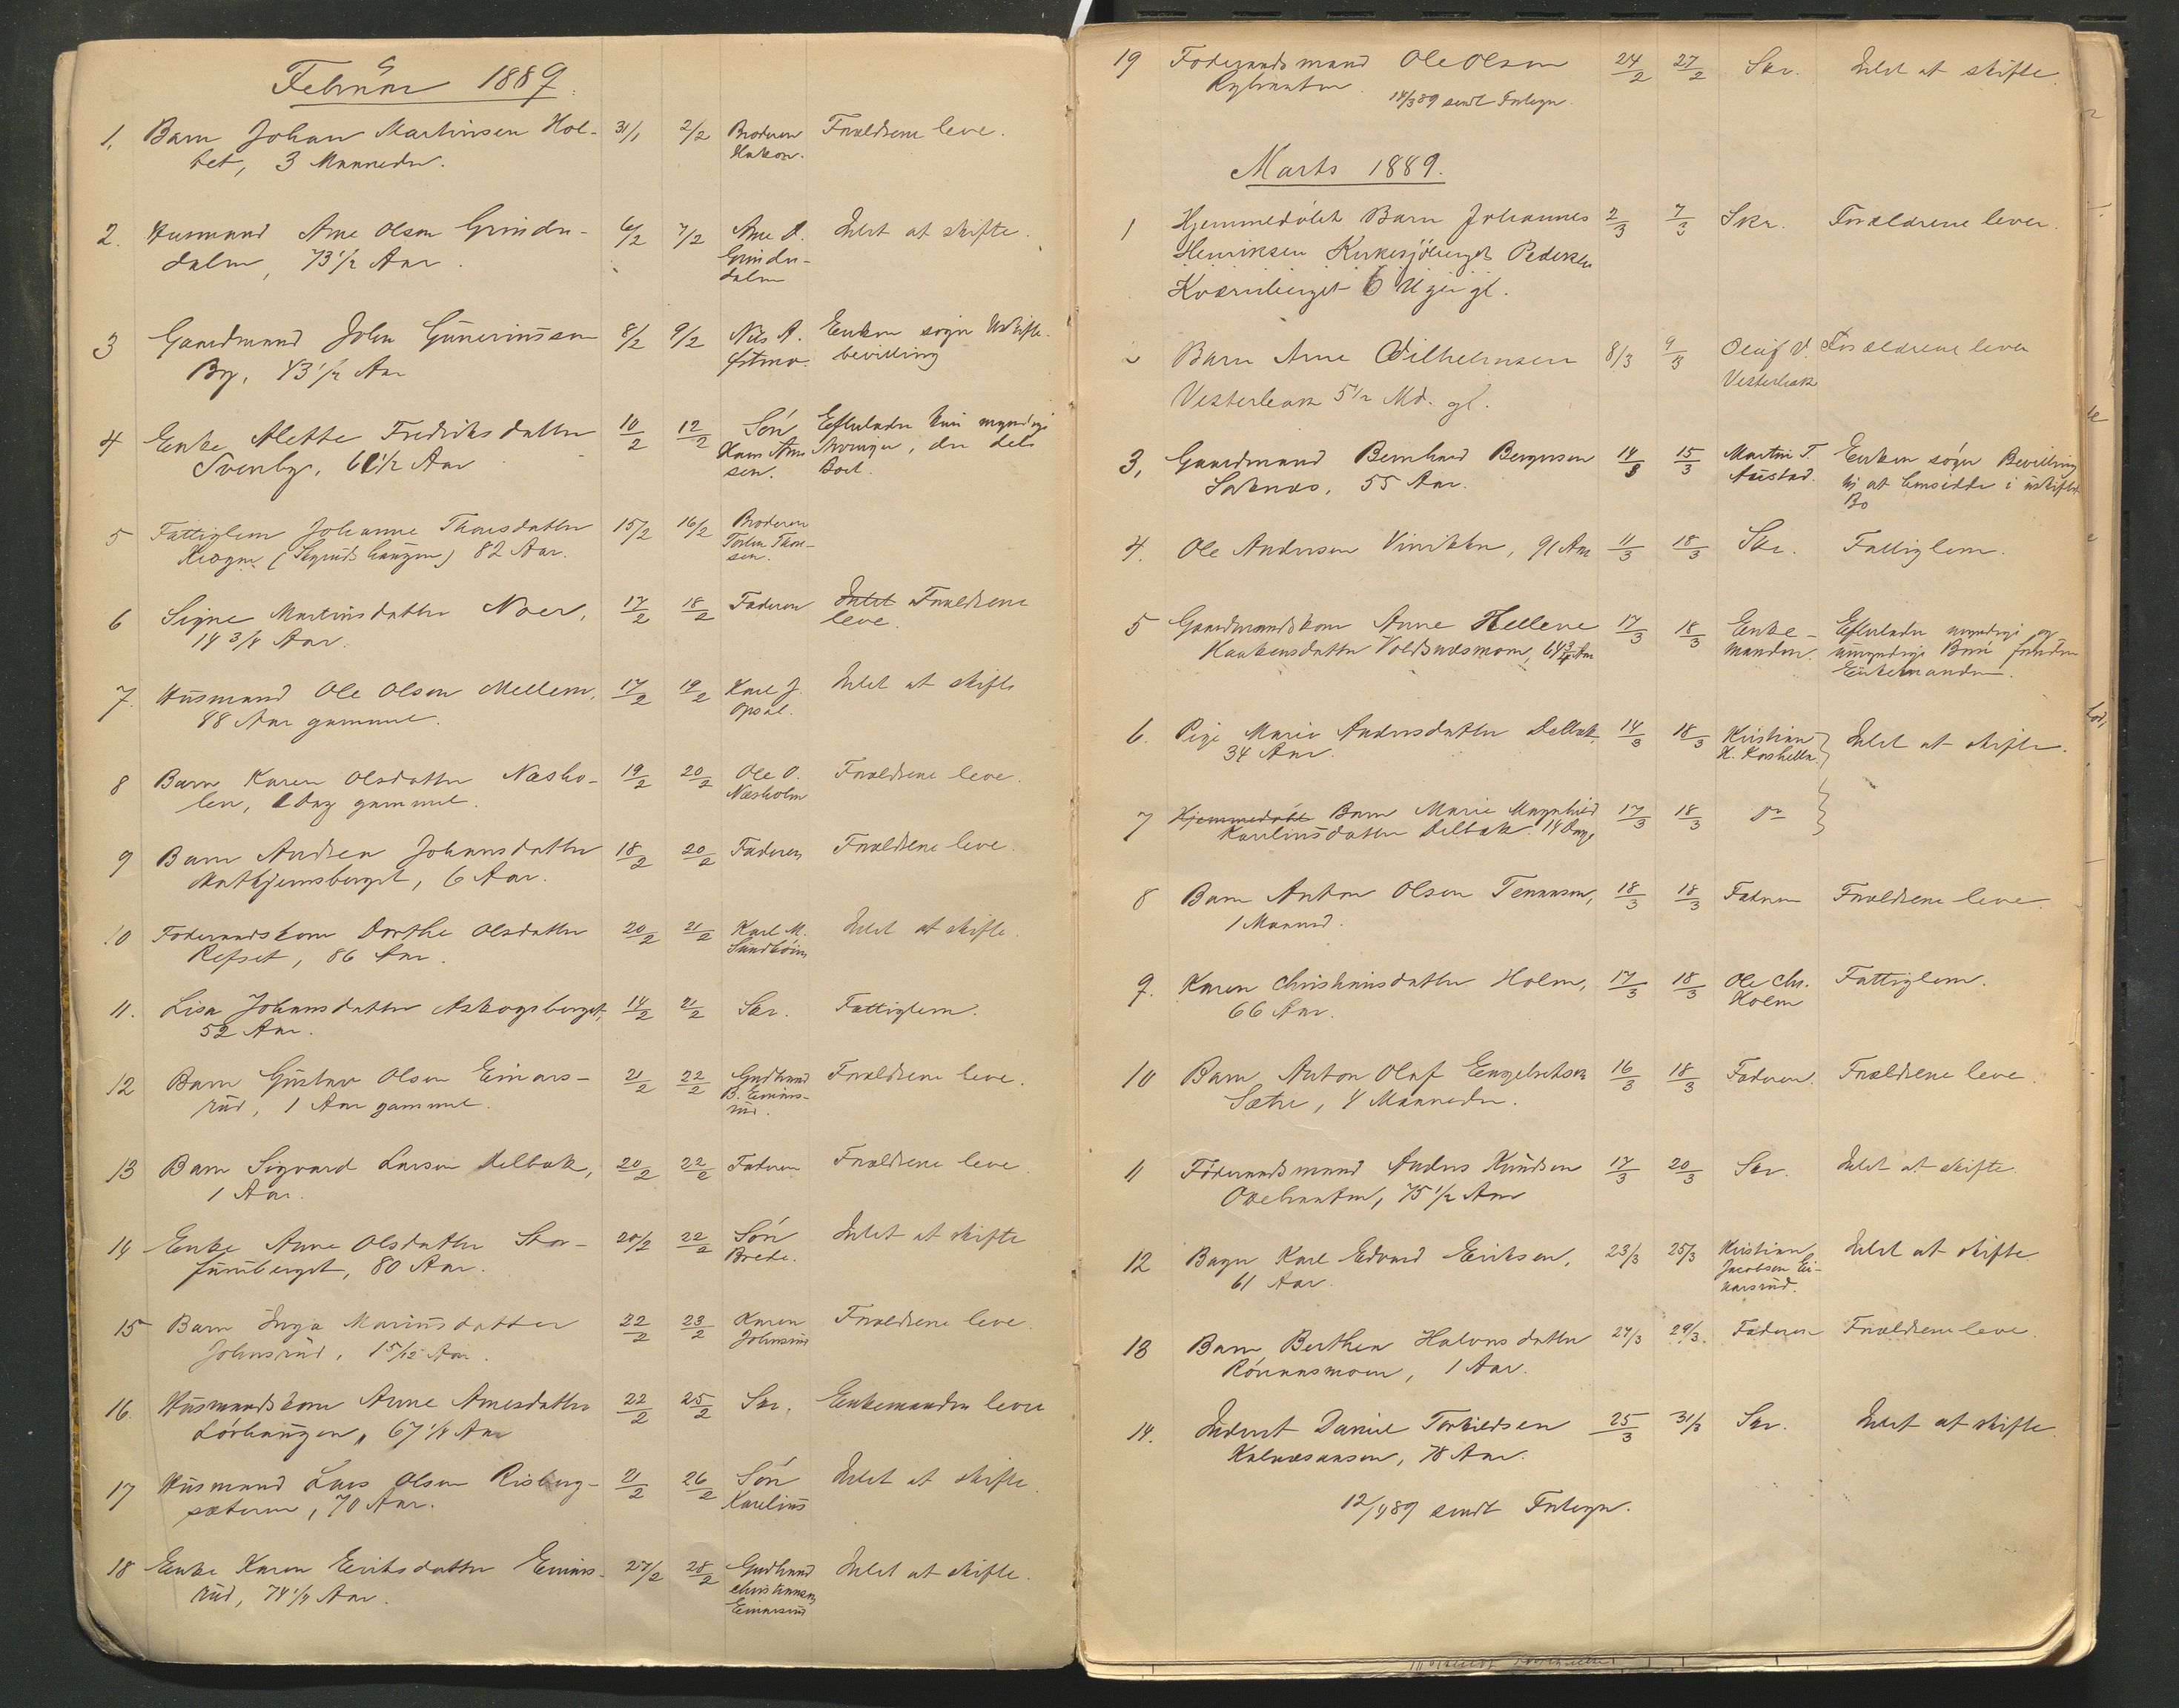 Februar 1889.
1. Barn Johan Martinsen Hol- 31/1 2/2 Broderen Forældrene leve.
tet, 3 Maaneder. Hakon.
2. Husmand Arne Olsen Grinder- 6/2 7/2 Arne A. Intet at skifte.
dalen, 73 1/2 Aar. Grinder-
dalen
3 Gaardmand John Guneriussen 8/2 9/2 Nils A. Enken søger Uskifte-
By, 43 1/2 Aar bevilling
4 Enke Alette Fredriksdatter 10/2 12/2 Søn Efterlader kun myndige
Svenby, 61 1/2 Aar Hans Arne- Arvinger, der dele
sen. Boet.
5 Fattiglem Johanne Thorsdatter 15/2 16/2 Broderen
(Skyrudshaugen) 82 Aar. Thor-
sen.
6 Signe Martinsdatter Noer, 17/2 18/2 Faderen Intet Forældrene
14 3/4 Aar. leve.
7. Husmand Ole Olsen Mellem, 17/2 19/2 Karl J. Intet at skifte
88 Aar gammel. Opsal.
8 Barn Karen Olsdatter Næsho- 19/2 20/2 Ole O. Forældrene leve.
len, 1 Dag gammel. Næsholen
9 Barn Andrea Johansdatter 18/2 20/2 Faderen Forældrene leve.
6 Aar.
10 Føderaadskone Dorthe Olsdatter 20/2 21/2 Karl M. Intet at skifte.
Refset, 86 Aar. Sundbøien
11. Lisa Johansdatter Askogsberget, 14/2 21/2 Skr. Fattiglem.
52 Aar.
12 Barn Gustav Olsen Einars- 21/2 22/2 Gudbrand Forældrene leve.
rud, 1 Aar gammel. B. Einars-
rud.
13 Barn Sigvard Larsen Delbæk, 20/2 22/2 Faderen Forældrene leve.
1 Aar.
14 Enke Anne Olsdatter Stor- 20/2 22/2 Søn Intet at skifte
furuberget, 80 Aar. Brede.
15 Barn Inga Mariusdatter 22/2 23/2 Karen Forældrene leve.
Johnsrud, 1 5/12 Aar. Johnsrud
16. Husmandskone Anne Arnesdatter 22/2 25/2 Skr. Enkemanden lever
Lørhaugen, 67 1/4 Aar
17 Husmand Lars Olsen Risberg- 21/2 26/2 Søn Intet at skifte.
sæteren, 70 Aar. Karelius
18 Enke Karen Eriksdatter Einars- 27/2 28/2 Gudbrand Intet at skifte.
rud, 74 1/4 Aar. Christiansen
Einarsrud
19 Føderaadsmand Ole Olsen 24/2 27/2 Skr. Intet at skifte.
14/3 89 sendt Fortegn.
Marts 1889.
1 Hjemmedøbt Barn Johannes 2/3 7/3 Skr. Forældrene lever.
Henriksen Kirkesjøberget Pedersen
Kværnberget 6 Uger gl.
2 Barn Arne Vilhelmsen 8/3 9/3 Oluf V. Forældrene lever
Vesterbak 5 1/2 Md. gl. Vesterbak
3, Gaardmand Bernhard Bergersen 14/3 15/3 Martin T. Enken søger Bevilling
Saknæs, 55 Aar. Austad. til at hensidde i uskiftet
Bo
4. Ole Andersen Viniken, 91 Aar 11/3 18/3 Skr. Fattiglem.
5 Gaardmandskone Anne Hellene 17/3 18/3 Enke- Efterlader myndige og
Haakensdatter Voldsnæsmoen, 64 3/4 Aar manden. umyndige Børn foruden
Enkemanden.
6. Pige Marie Andersdatter Delbæk, 14/3 18/3 Kristian Intet at skifte.
34 Aar.
7 Hjemmedøbt Barn Marie Magnhild 17/3 18/3 Do
Karelinsdatter Delbæk. 14 Dage
8 Barn Anton Olsen Tennæsen, 18/3 18/3 Faderen Forældrene leve.
1 Maaned.
9. Karen Christiansdatter Holm, 17/3 18/3 Ole Chr. Fattiglem.
66 Aar. Holm
10 Barn Anton Olaf Engebretsen 16/3 18/3 Faderen. Forældrene leve.
Sætre, 4 Maaneder.
11 Føderaadsmand Anders Knudsen 17/3 20/3 Skr. Intet at skifte.
75 1/2 Aar
12 Bager Karl Edvard Eriksen, 23/3 25/3 Kristian Intet at skifte.
61 Aar. Jacobsen Ei-
narsrud.
13 Barn Berthea Halvorsdatter 27/3 29/3. Faderen Forældrene leve.
Rønaasmoen, 1 Aar.
14. Inderst Daniel Torkildsen 25/3 31/3 Skr. Intet at skifte.
Kalnæsaasen, 78 Aar.
12/4 89 sendt Fortegn.